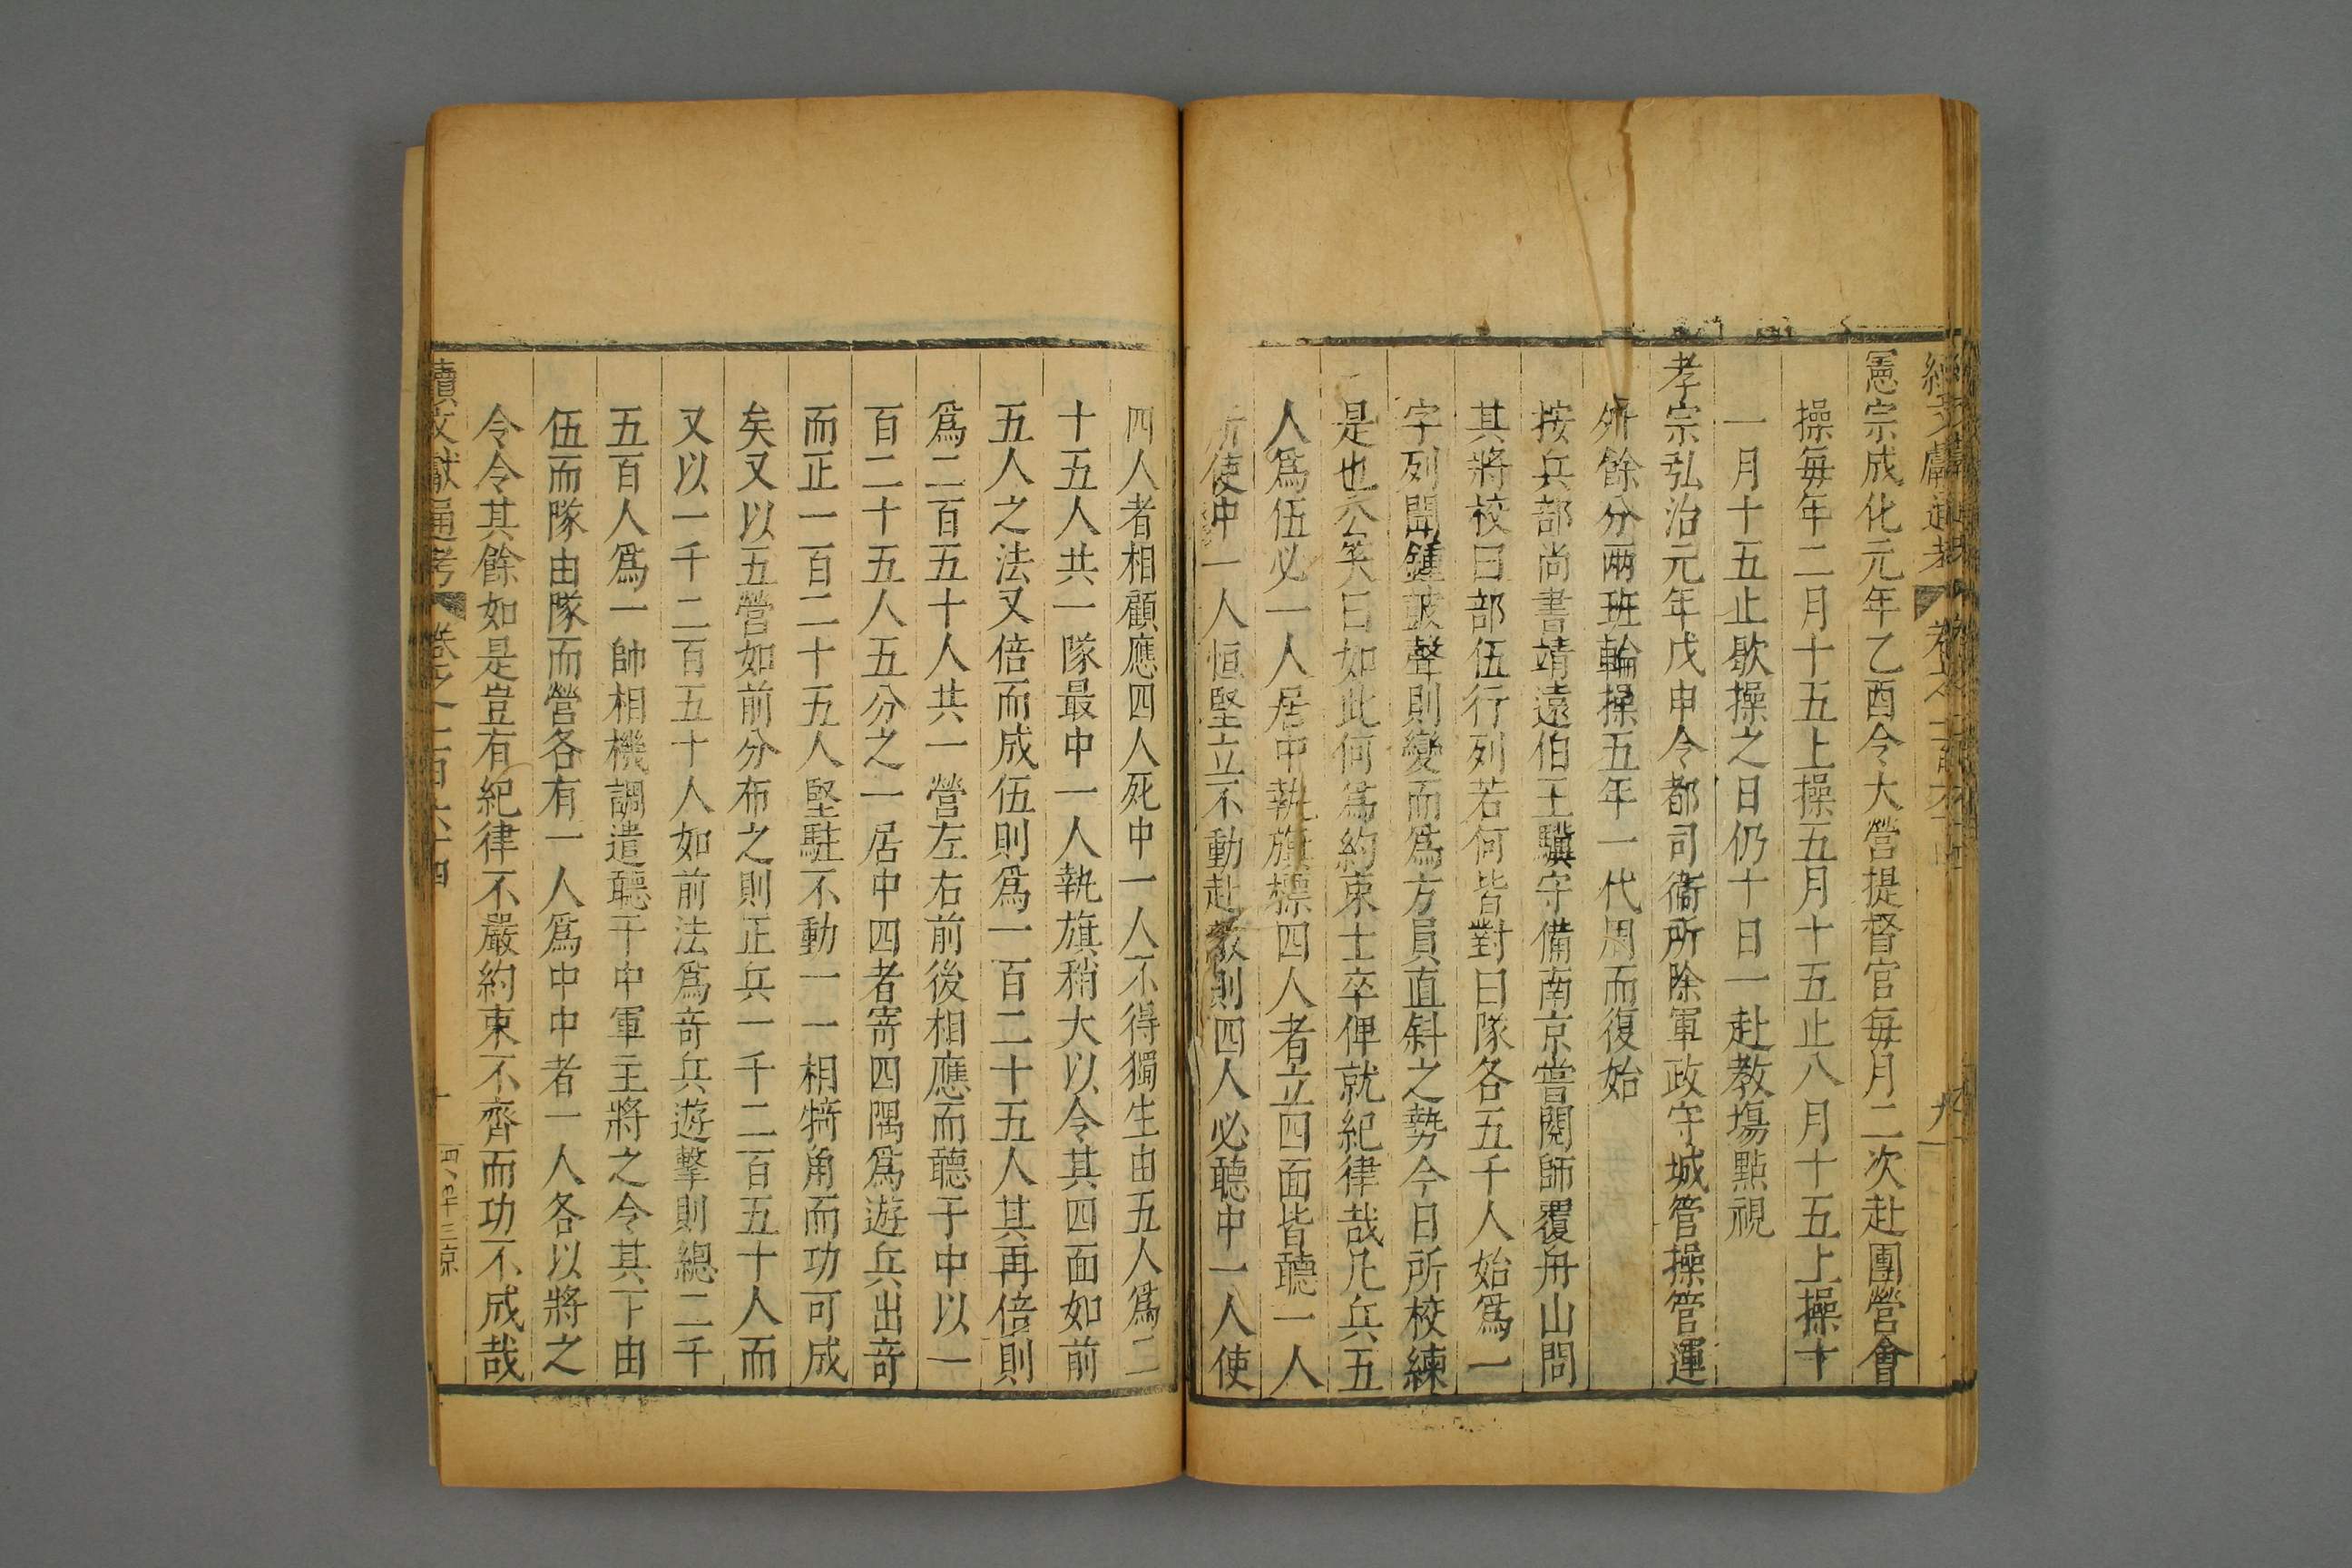 續文獻通考 卷之一百六十四 九
憲宗成化元年乙酉令大營提督官每月二次赴團營會
操每年二月十五上操五月十五止八月十五上操十
一月十五止歇操之日仍十日一赴教場點視
孝宗弘治元年戊申令都司衞所除軍政守城管操管運
外餘分兩班輪操五年一代周而復始
按兵部尚書靖遠伯王驥守備南京嘗閱師覆舟山問
其將校曰部伍行列若何皆對曰隊各五千人始爲一
字列聞鍾鼓聲則變而爲方員直斜之勢今日所校練
是也公笑曰如此何爲約束士卒俾就紀律哉凡兵五
人爲伍必一人居中執旗標四人者立四面皆聽一人
所使中一人恒堅立不動赴敵則四人必聽中一人使
四人者相顧應四人死中一人不得獨生由五人爲二
十五人共一隊最中一人執旗稍大以令其四面如前
五人之法又倍而成伍則爲一百二十五人其再倍則
爲二百五十人共一營左右前後相應而聽于中以一
百二十五人五分之一居中四者寄四隅爲遊兵出奇
而正一百二十五人堅駐不動一一相犄角而功可成
矣又以五營如前分布之則正兵一千二百五十人而
又以一千二百五十人如前法爲奇兵遊擊則總二千
五百人爲一帥相機調遣聽于中軍主將之令其下由
伍而隊由隊而營各有一人爲中中者一人各以將之
令令其餘如是豈有紀律不嚴約束不齊而功不成哉
續文獻通考 卷之一百六十四 十